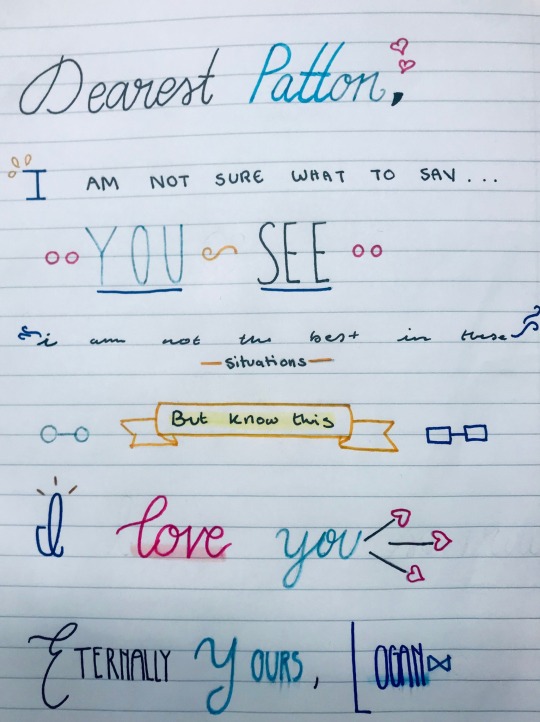 Dearest Patton,
I AM NOT SURE WHAT TO SAY...
YOU SEE
i am not the best in these
situations
But know this
I love you
ETERNALLY YOURS, LOGAN